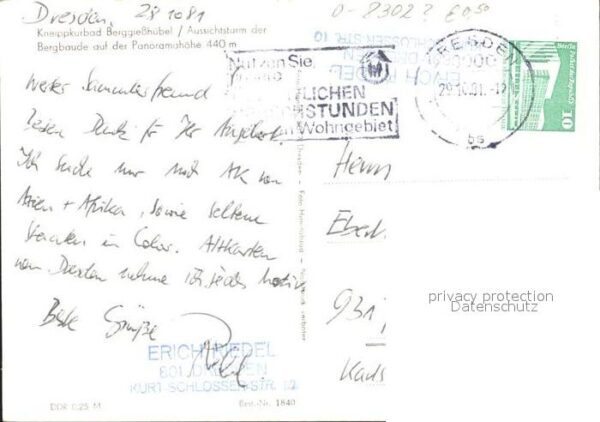 Dresden, 28 10 81
0-8302? €0,50
Kneippkurbad Berggießhübel / Aussichtsturm der
Bergbaude auf der Panoramahöhe 440 m
Nutzen Sie
LICHEN
STUNDEN
Wohngebiet
DRESDEN
29.10.81.-12
bs
10
Werter Sammlerfreund
Besten Dank für Ihr Angebot.
Ich suche nur mit AK von
Asien + Afrika, sowie seltene
Staaten in Color. Altkarten
von Dresden nehme ich jedes Motiv
Beste Grüße
Herrn
Eberh
931
Karls
privacy protection
Datenschutz
ERICH RIEDEL
801 DRESDEN
KURT-SCHLOSSER-STR. 10
DDR 0,25 M
Best.-Nr. 1840